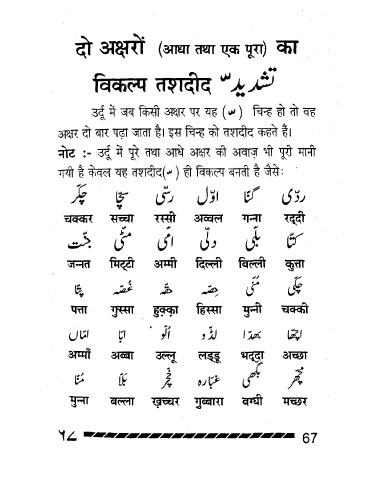 दो अक्षरों (आधा तथा एक पूरा) का
विकल्प तशदीद ّ تشدید
उर्दू में जब किसी अक्षर पर यह ( ّ ) चिन्ह हो तो वह
अक्षर दो बार पढ़ा जाता है। इस चिन्ह को तशदीद कहते हैं।
नोट :- उर्दू में पूरे तथा आधे अक्षर की अवाज़ भी पूरी मानी
गयी है केवल यह तशदीद( ّ ) ही विकल्प बनती है जैसे:
ردّی گنّا اوّل رسّی سچّا چکّر
चक्कर सच्चा रस्सी अव्वल गन्ना रद्दी
کتّا بلّی دلّی امّی مٹّی جنّت
जन्नत मिट्टी अम्मी दिल्ली बिल्ली कुत्ता
چکّی منّی حصّہ حقّہ غصّہ پتّا
पत्ता गुस्सा हुक़्क़ा हिस्सा मुन्नी चक्की
اچھا بھدا لڈو الّو ابّا امّاں
अम्माँ अब्बा उल्लू लड्डू भद्दा अच्छा
مچھر بگھی غبارہ خچّر بلّا منّا
मुन्ना बल्ला ख़च्चर गुब्बारा बग्घी मच्छर
۶۷ 67